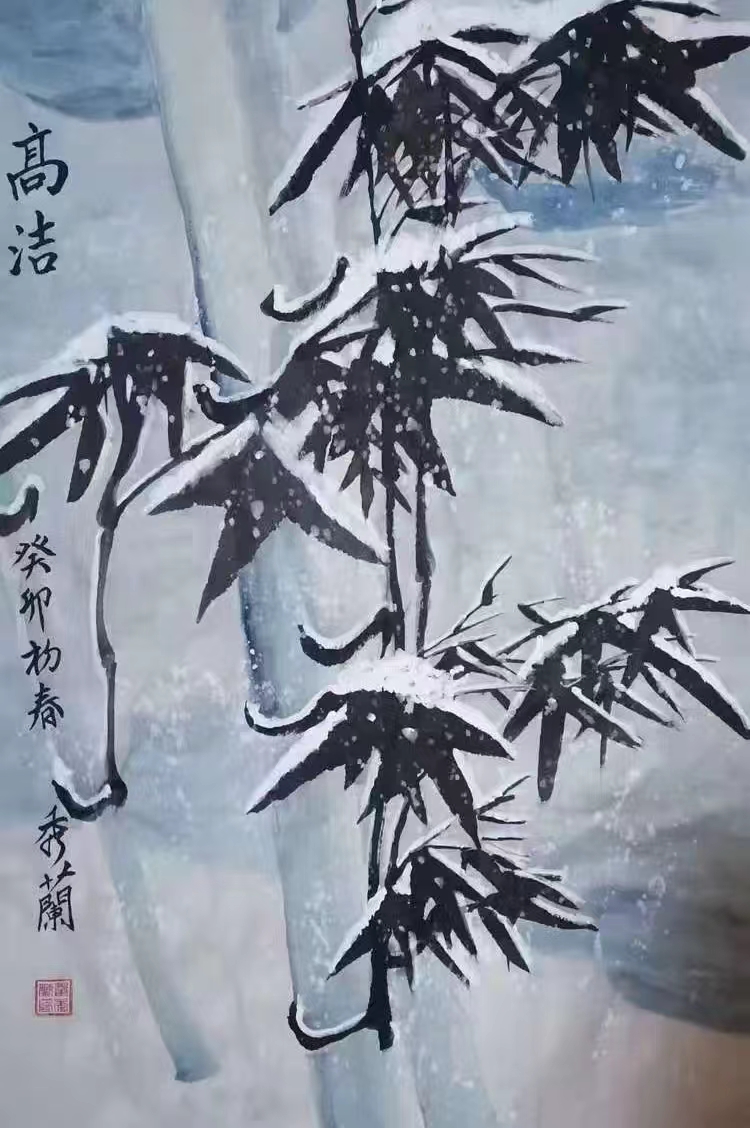 高洁
癸卯初春
秀蘭